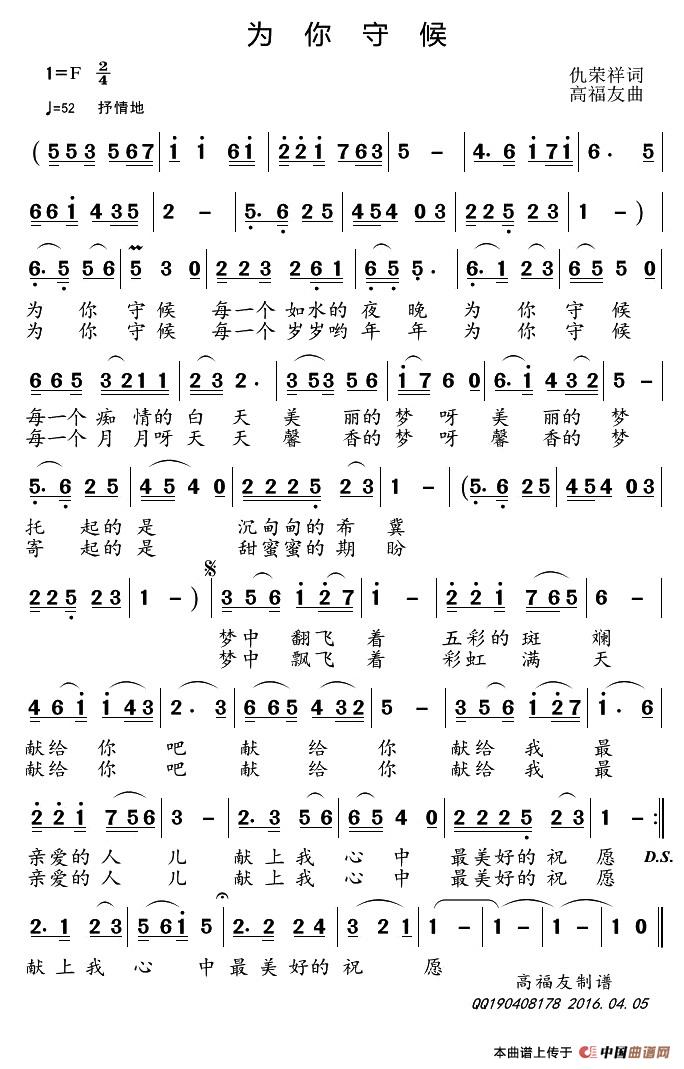 为你守候
1=F 2/4 仇荣祥词
♩=52 抒情地 高福友曲
( 5 5 3 5 6 7 | i i 6 i | 2 2 i 7 6 3 | 5 - | 4. 6 i 7 i | 6. 5
6 6 i 4 3 5 | 2 - | 5. 6 2 5 | 4 5 4 0 3 | 2 2 5 2 3 | 1 - )
6. 5 5 6 | 5 3 0 | 2 2 3 2 6 1 | 6 5 5. | 6. 1 2 3 | 5 5 0
为 你 守候 每一个 如水的 夜 晚 为 你 守 候
为 你 守候 每一个 岁岁哟 年 年 为 你 守 候
6 6 5 3 2 1 1 | 2 3 2. | 3 5 3 5 6 | i 7 6 0 | 6. i 4 3 2 | 5 -
每一个 痴 情的 白 天 美 丽的 梦 呀 美 丽的 梦
每一个 月 月呀 天 天 馨 香的 梦 呀 馨 香的 梦
5. 6 2 5 | 4 5 4 0 | 2 2 2 5 2 3 | 1 - | (5. 6 2 5 | 4 5 4 0 3
托 起的 是 沉甸甸的 希 冀
寄 起的 是 甜蜜蜜的 期 盼
2 2 5 2 3 | 1 - ) | 3 5 6 i 2 7 | i - | 2 2 i 7 6 5 | 6 -
梦中 翻飞 着 五彩的 斑 斓
梦中 飘飞 着 彩虹 满 天
4 6 i i 4 3 | 2. 3 | 6 6 5 4 3 2 | 5 - | 3 5 6 i 2 7 | i. 6
献给 你 吧 献 给 你 献给 我 最
献给 你 吧 献 给 你 献给 我 最
2 2 i 7 5 6 | 3 - | 2. 3 5 6 | 6 5 4 0 | 2 2 2 5 2 3 | 1 - :||
亲爱的 人 儿 献 上 我 心 中 最美好的 祝 愿 D.S.
亲爱的 人 儿 献 上 我 心 中 最美好的 祝 愿
2. 1 2 3 | 5 6 i 5 | 2. 2 2 4 | 3 2 1 | 1 - | 1 - | 1 0 ||
献 上 我 心 中 最 美 好的 祝 愿
高福友制谱
QQ190408178 2016.04.05
本曲谱上传于 中国曲谱网